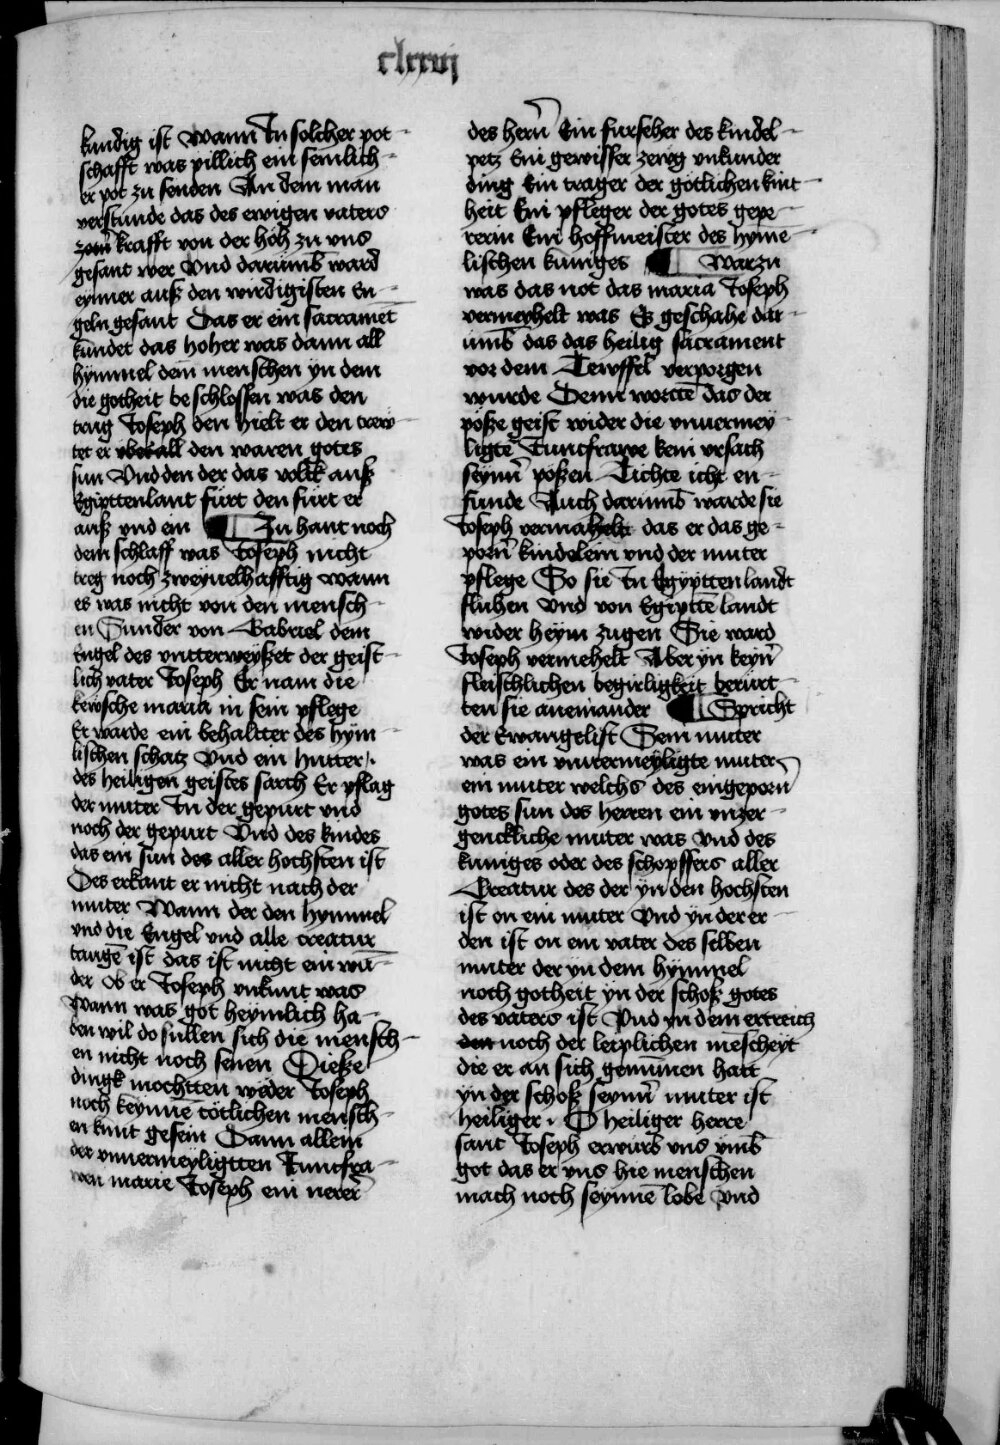 clxxvj
kundig ist Wann Jn solcher pot-
schafft was pillich ein semlich-
er pot zu senden An dem man
verstunde das des ewigen vaters
zorn krafft von der höh zu vns
gesant wer Vnd darumb ward
eynner auß den wirdigisten En-
geln gesant Das er ein sacrament
kundet das hoher was dann all
hymmel dem menschen yn dem
die gotheit beschlossen was den
trug Joseph den hielt er den trew
tet er vberall den waren gotes
sun Vnd den der das volck auß
Egipttenlant fürt den fürt er
auß vnd ein Zu hant noch
dem schlaff was Joseph nicht
treg noch zweyuelhafftig wann
es was nicht von den mensch-
en Sunder von Gabriel dem
Engel des vntterweyßet der geist-
lich vater Joseph Er nam die
kewsche maria in sein pflege
Er warde ein behaltter des hym-
lischen schatz Vnd ein hutter
des heiligen geistes sarch Er pflag
der muter Jn der gepurt vnd
noch der gepurt Vnd des kindes
das ein sun des aller hochsten ist
Des erkant er nicht nach der
muter Wann der den hymmel
vnd die Engel vnd alle creatur
tangē ist das ist nicht ein wū-
der Ob er Joseph vnkunt was
Wann was got heymlich ha-
ben wil do sullen sich die mensch-
en nicht noch senen Dieße
dingk mochtten weder Joseph
noch keynnē tötlichen mensch-
en kunt gesein Dann allein
der vnuermeyligtten Junckfra-
wen marie Joseph ein nerer
des hern̄ Ein furseher des kindel-
petz Ein gewisser zewg vnkunder
ding Ein trager der götlichen kint-
heit Ein pfleger der gotes gepe-
rerin Ein hoffmeister des hyme-
lischen kuniges Warzu
was das not das maria Joseph
vermeyhelt was Es geschahe dar-
umb das das heilig sacrament
vor dem Tewffel verporgen
wurde Denn worttē das der
pöße geist wider die vnuermey-
ligtē Junckfrawe kein vrsach
seynn̄ pößen Tichte icht en-
funde Auch darumb warde sie
Joseph vermahelt das er das ge-
porn̄ kindelein vnd der muter
pflege So sie Jn Egypttenlandt
fluhen Vnd von Egipttē landt
wider heym zugen Sie ward
Joseph vermehelt Aber yn keyn̄
fleischlichen begirligkeit berürt-
ten sie aneinander Spricht
der Ewangelist Sein muter
was ein vnuermeyligte muter
ein muter welchs des eingeporn̄
gotes sun des herren ein vnzer-
genckliche muter was Vnd des
kuniges oder des schopffers aller
Creatur des der yn den hochsten
ist on ein muter Vnd yn der er-
den ist on ein vater des selben
muter der yn dem hymmel
noch gotheit yn der schoß gotes
des vaters ist Vnd yn dem ertreich
den noch der leiplichen mēscheyt
die er an sich genummen hatt
yn der schoß seynn̄ muter ist
heiliger. O heiliger herre
sant Joseph erwurb vns vmb
got das er vns hie menschen
mach noch seynnē lobe Vnd